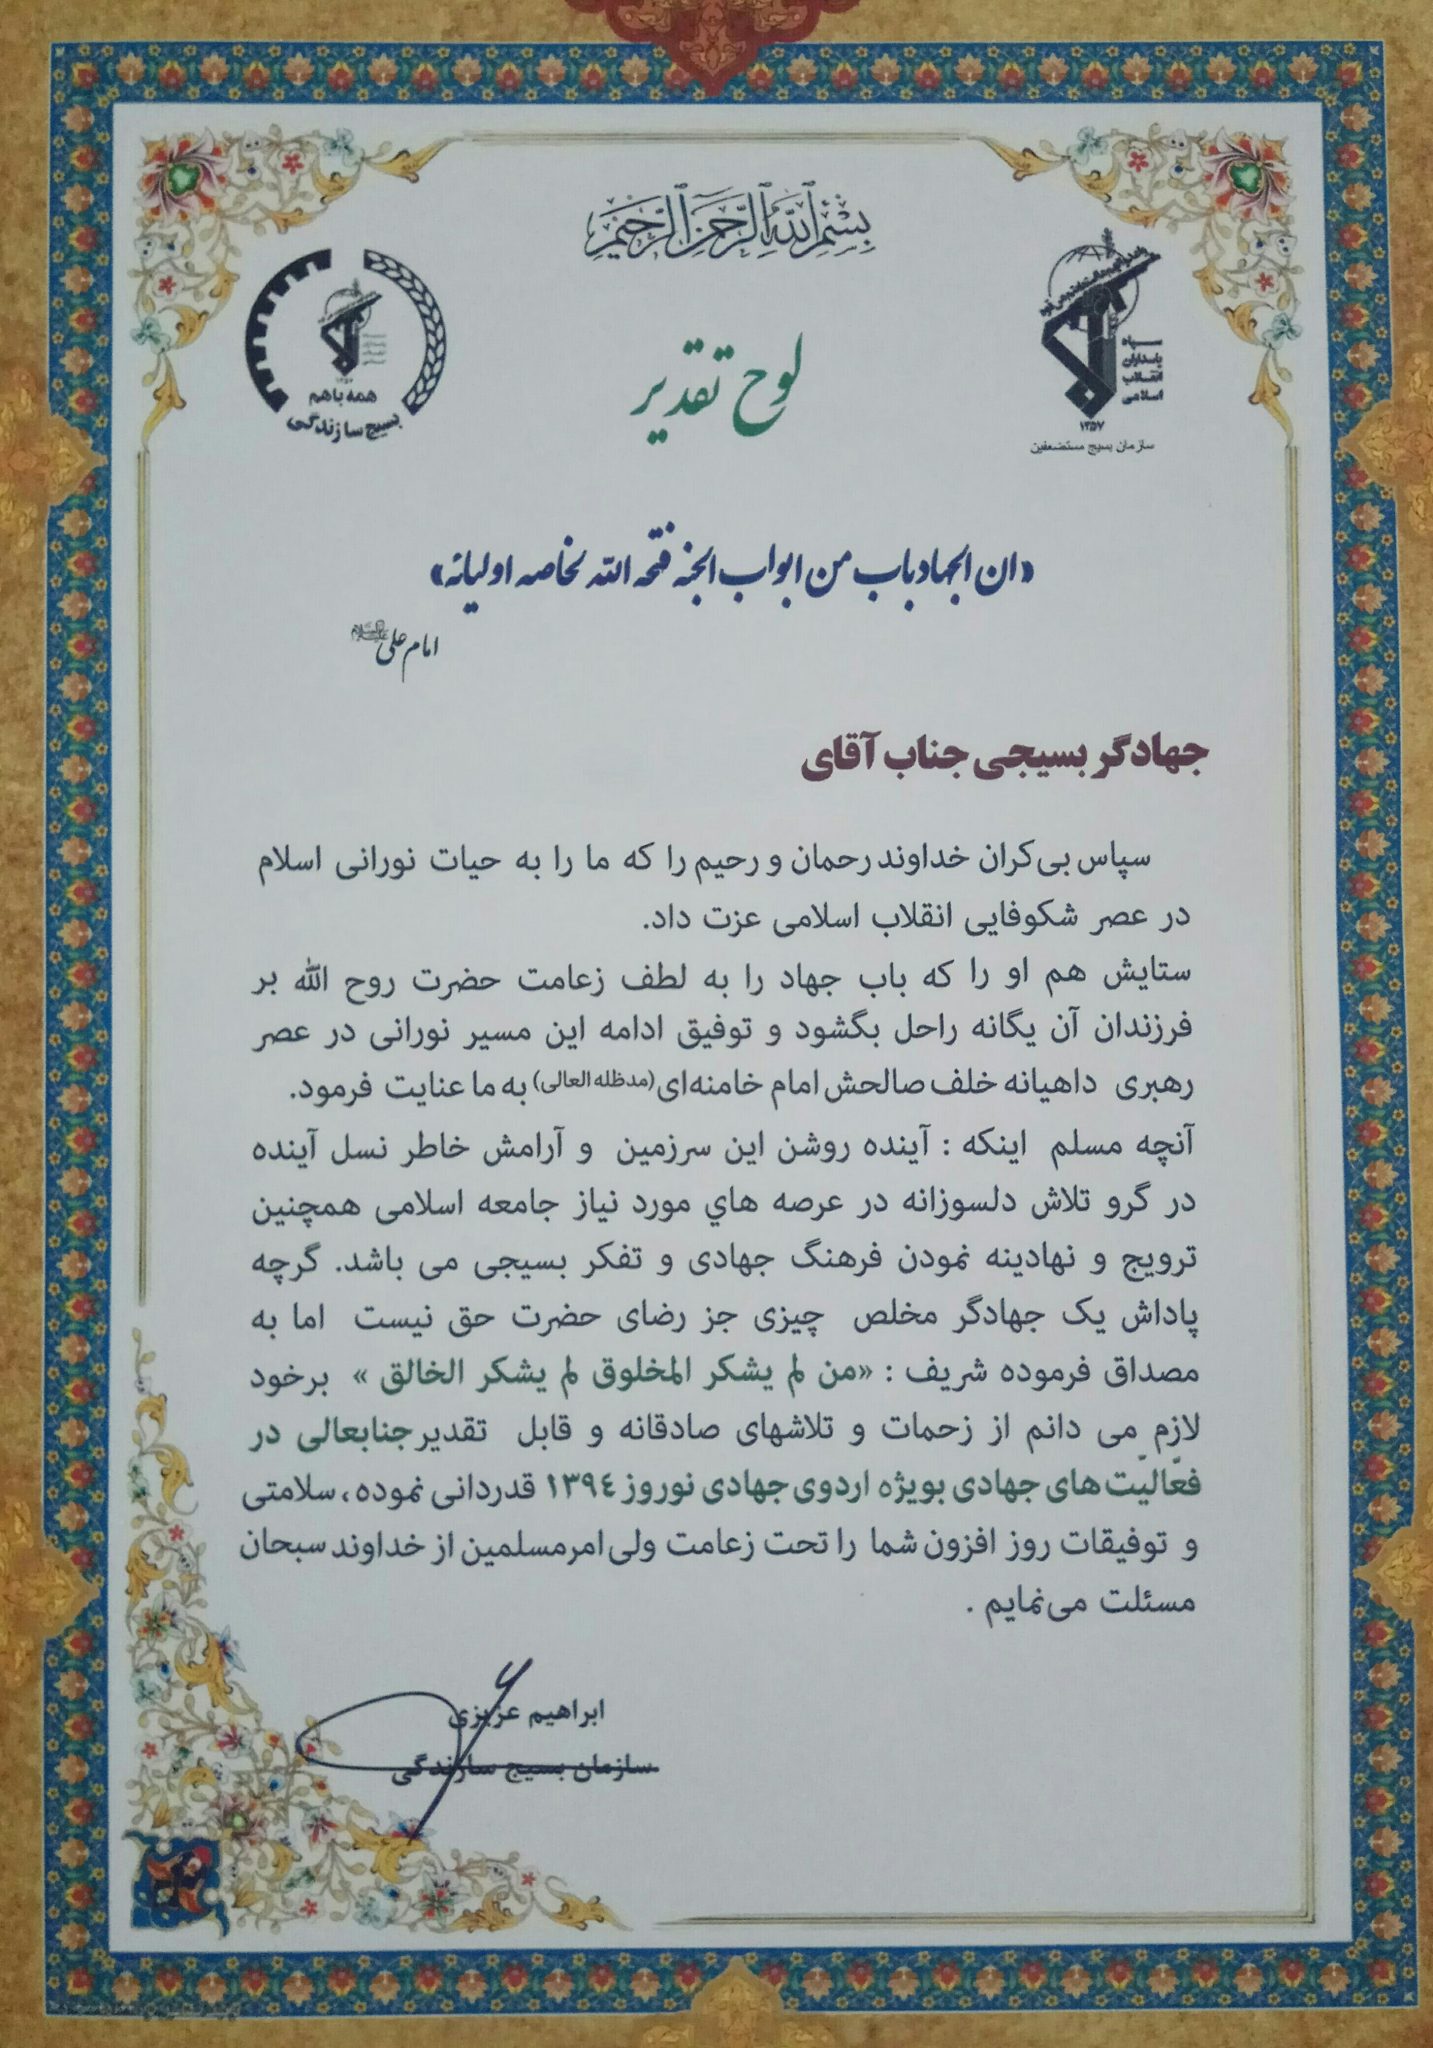 بسم الله الرحمن الرحیم
سپاه
پاسداران
انقلاب
اسلامی
۱۳۵۷
سازمان بسیج مستضعفین
همه با هم
بسیج سازندگی
لوح تقدیر
«ان الجهاد باب من ابواب الجنه فتحه الله لخاصه اولیائه»
امام علی علیه‌السلام
جهادگر بسیجی جناب آقای
سپاس بی‌کران خداوند رحمان و رحیم را که ما را به حیات نورانی اسلام
در عصر شکوفایی انقلاب اسلامی عزت داد.
ستایش هم او را که باب جهاد را به لطف زعامت حضرت روح الله بر
فرزندان آن یگانه راحل بگشود و توفیق ادامه این مسیر نورانی در عصر
رهبری داهیانه خلف صالحش امام خامنه‌ای(مدظله العالی) به ما عنایت فرمود.
آنچه مسلم اینکه : آینده روشن این سرزمین و آرامش خاطر نسل آینده
در گرو تلاش دلسوزانه در عرصه هاي مورد نیاز جامعه اسلامی همچنین
ترویج و نهادینه نمودن فرهنگ جهادی و تفکر بسیجی می باشد. گرچه
پاداش یک جهادگر مخلص چیزی جز رضای حضرت حق نیست اما به
مصداق فرموده شریف : «من لم یشکر المخلوق لم یشکر الخالق » برخود
لازم می دانم از زحمات و تلاشهای صادقانه و قابل تقدیر جنابعالی در
فعّالیّت‌های جهادی بویژه اردوی جهادی نوروز ۱۳۹٤ قدردانی نموده، سلامتی
و توفیقات روز افزون شما را تحت زعامت ولی امرمسلمین از خداوند سبحان
مسئلت می‌نمایم .
ابراهیم عزیزی
سازمان بسیج سازندگی